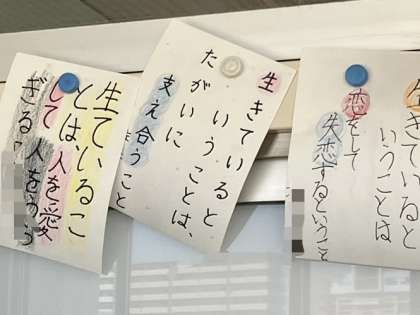 生きていると
いうことは、
たがいに
支え合う
こと
生ているこ
とは、人を愛
して人をうら
ぎる
生きていると
いうことは
恋をして
失恋するということ